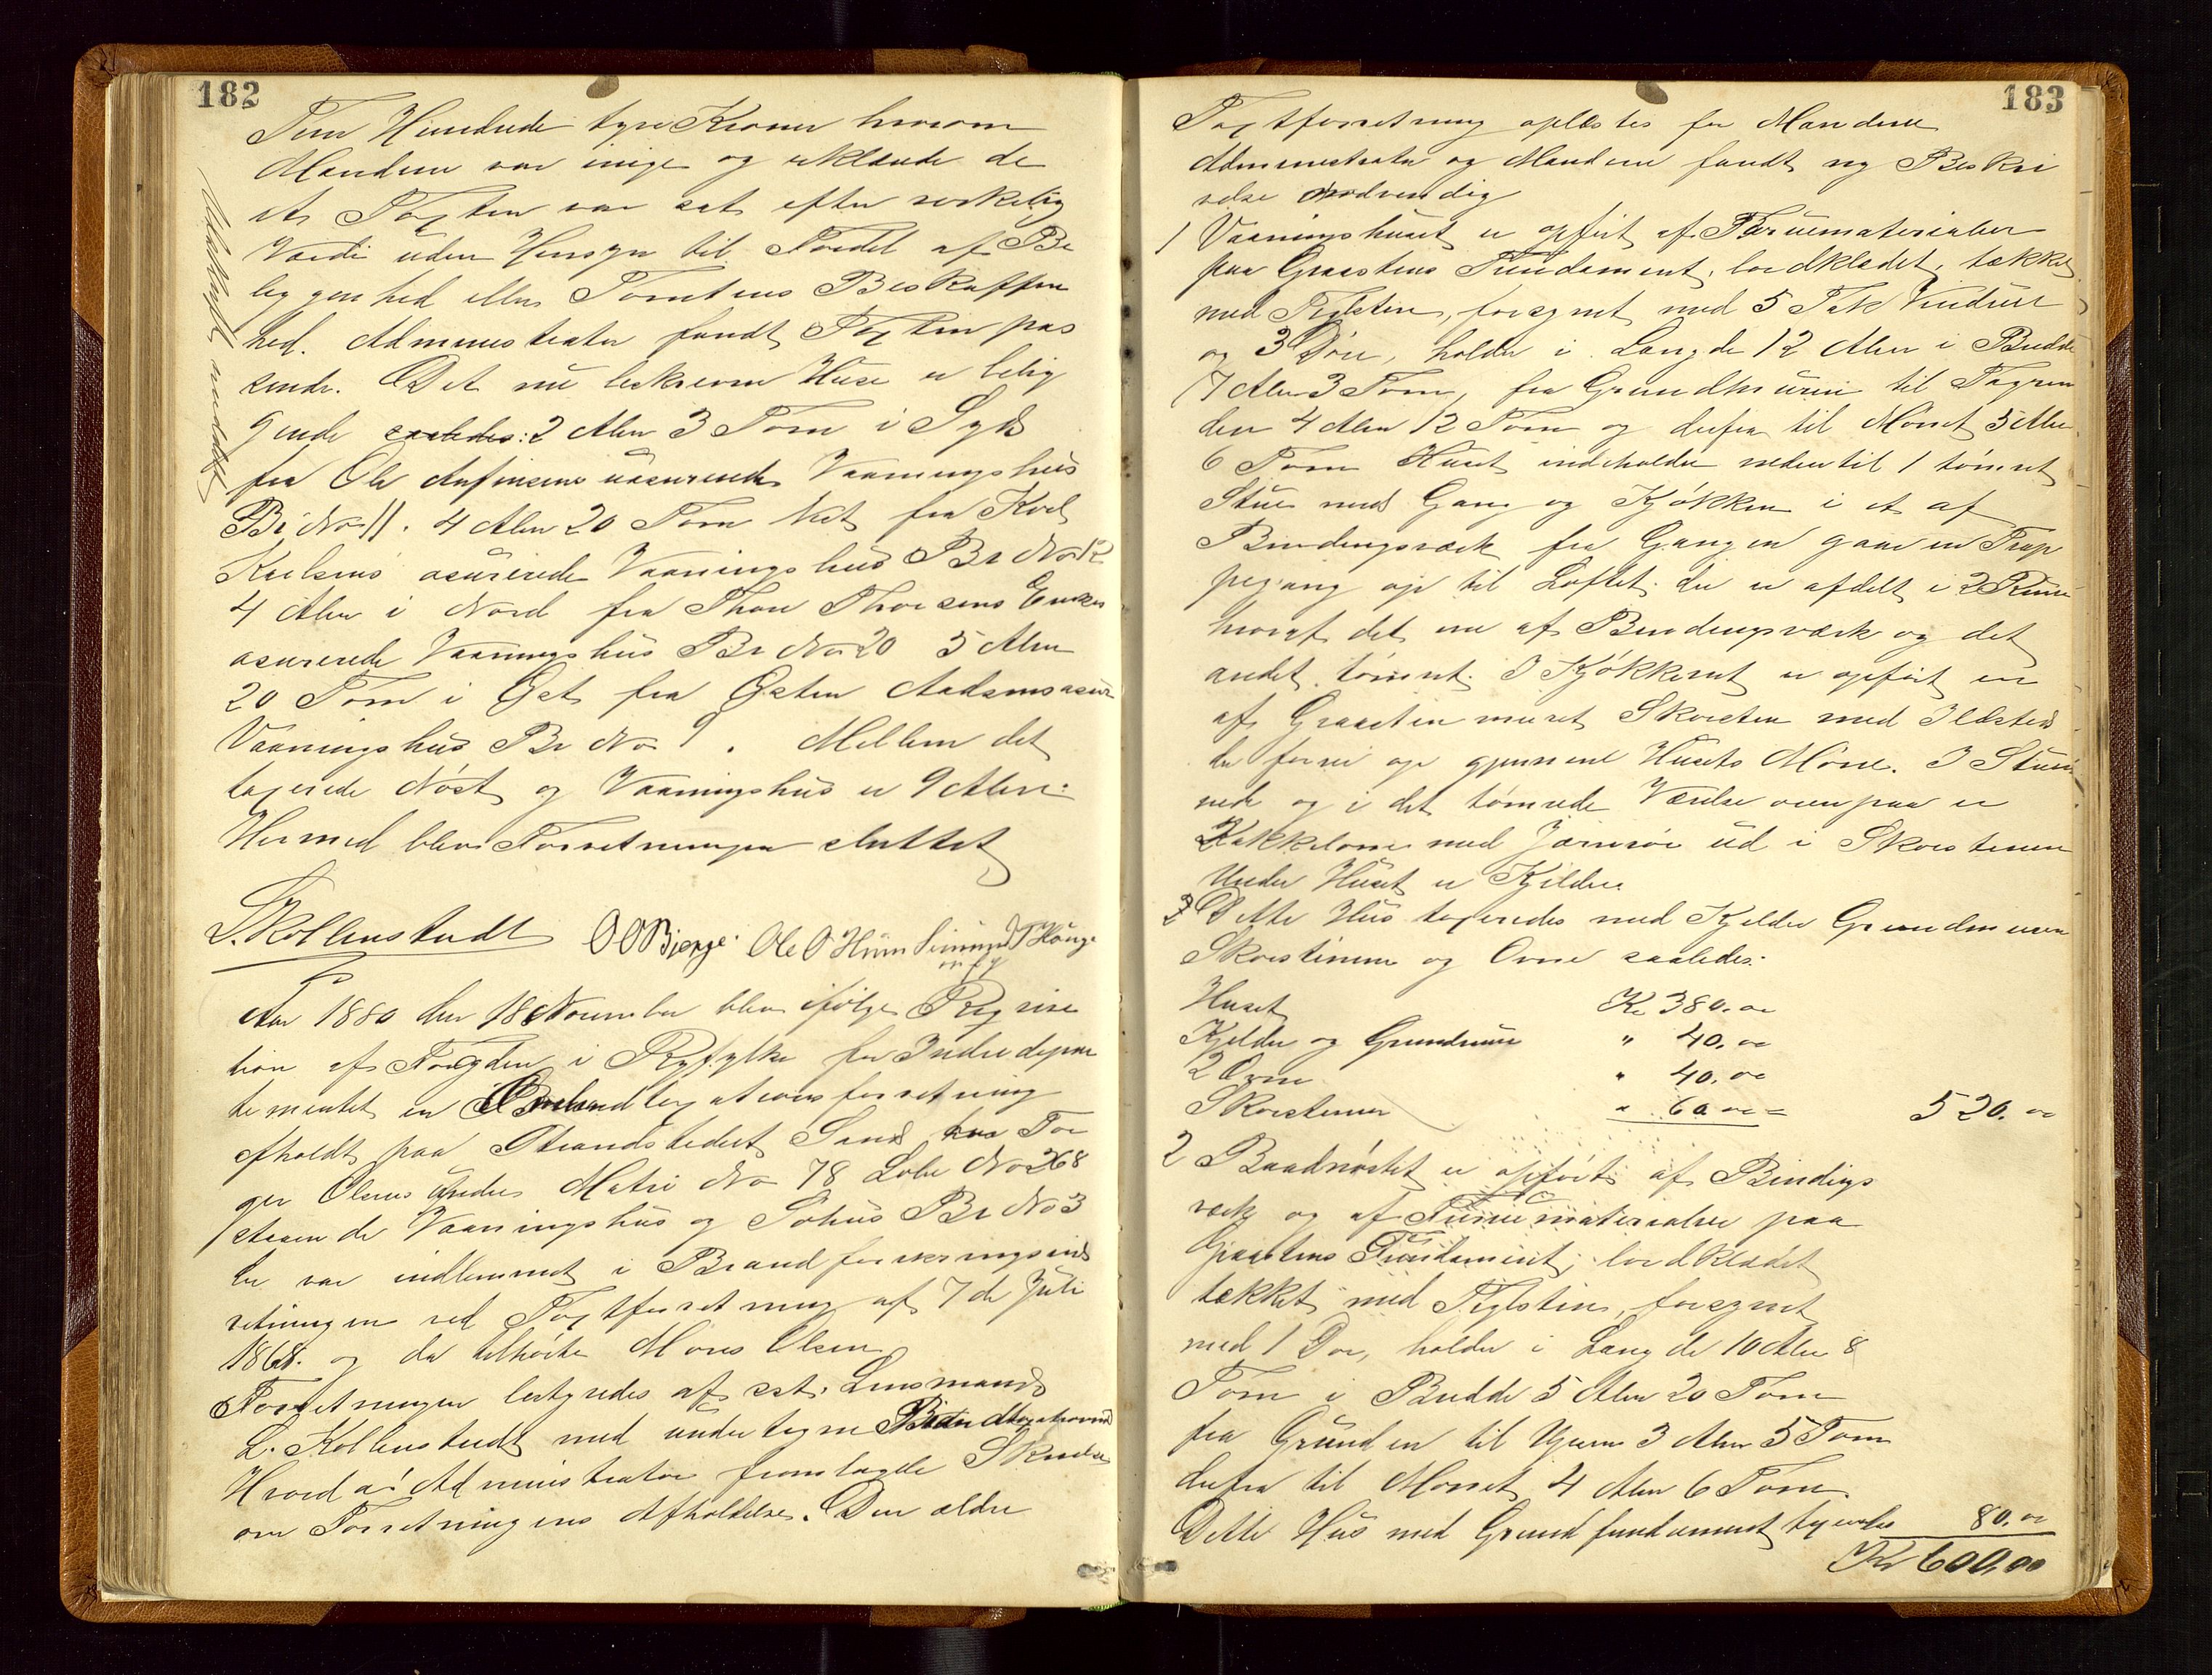 182
Fem Hundrede tyve Kroner hvorom
Mændene var enige og erklærede de
at Taxten var sat efter virkelig
Værdi uden Hensyn til Fordel af Be
liggenhed eller Tomtens Beskaffen
hed. Administrator fandt Taxten pas
sende. Det nu beskrevne Huse er belig
gende saaledes: 2 Alen 3 Tom i Syd
fra Ole Anfinsens uasurerede Vaaningshus
Br No 11. 4 Alen 20 Tom Vest fra Karl
Karlsens asurerede Vaaningshus Br No 12
4 Alen i Nord fra Thore Thorsens Enkes
asurerede Vaaningshus Br No 20 5 Alen
20 Tom i Øst fra Østen Aadsens asur
Vaaningshus Br No 9. Mellem det
taxerede Nøst og Vaaningshus er 9 Alen.
Hermed blev Forretningen sluttet
L. Kollenstvedt O O Bjerge. Ole O Hiim Simund T Houge
m f p
Aar 1880 den 18 November blev ifølge Reqvisi
tion af Fogden i Ryfylke for Indredeparte
tementet en Omtaxationsforretning
afholdt paa Strandstedet Sand hos Tor
ger Olsens under Matr No 78 Løbe No 268
staaende Vaaningshus og Søhus Br No 3
der var indlemmet i Brandforsikringsind
retningen ved Taxtforretning af 7de Juli
1868. og da tilhørte Mons Olsen
Forretningen bestyredes af sst. Lensmand
L. Kollenstvedt med undertegne Brandtaxationsmd
Hvorda Administrator fremlagde Skrivelse
om Forretningens Afholdelse. Den ældre
183
Taxtforretning oplæstes for Mændene
Administrator og Mændene fandt ny Beskri
velse nødvendig
1 Vaaningshuset er opført af Furuematerialier
paa Graastens Fundament, bordklædet, tækket
med Teglsten, forsynet med 5 Fak Vinduer
og 3 Døre, holder i Længde 12 Alen i Bredde
7 Alen 3 Tom, fra Grundmuren til Tagren
den 4 Alen 12 Tom og derfra til Mønet 3 Alen
6 Tom Huset indeholder nedentil 1 tømret
Stue med Gang og Kjøkken i et af
Bindingsværk fra Gangen gaar en Trap
pegang op til Loftet. der er afdelt i 2 Rum
hvoraf det ene af Bindingsværk og det
andet tømret. I Kjøkkenet er opført en
af Graasten muret Skorsten med Ildsted
der fører op gjennem Husets Møne. I Stuen
nede og i det tømrede Værelse ovenpaa er
Kakkelovne med Jærnrør ud i Skorstenen
Under Huset er Kjelder.
Dette Hus taxeredes med Kjelder Grundmuren
Skorstenen og Ovne saaledes:
Huset Kr 380.00
Kjelder og Grundmur " 40.00
2 Ovne " 40.00
Skorstenen " 60 00 = 520.00
2 Baadnøstet er opført af Bindings
værk og af Furuematerialier paa
Graastens Fundament, bordklædet
tækket med Teglsten, forsynet
med 1 Dør, holder i Længde 10 Alen 8
Tom i Bredde 5 Alen 20 Tom
fra Grunden til Ufsen 3 Alen 5 Tom
derfra til Mønet 4 Alen 6 Tom.
Dette Hus med Grundfundament taxeredes 80.00
Kr 600,00